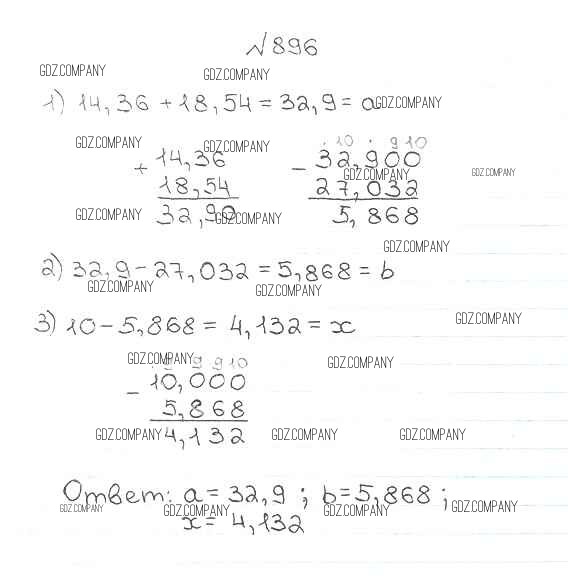 №896
GDZ.COMPANY GDZ.COMPANY
1) 14,36 + 18,54 = 32,9 = a GDZ.COMPANY
GDZ.COMPANY GDZ.COMPANY
+ 14,36
18,54
32,90
GDZ.COMPANY GDZ.COMPANY
10 9 10
- 32,900
GDZ.COMPANY GDZ.COMPANY
27,032
5,868
GDZ.COMPANY
2) 32,9 - 27,032 = 5,868 = b
GDZ.COMPANY GDZ.COMPANY
3) 10 - 5,868 = 4,132 = x
GDZ.COMPANY
GDZ.COMPANY GDZ.COMPANY
9 9 9 10
- 10,000
5,868
4,132
GDZ.COMPANY GDZ.COMPANY GDZ.COMPANY
Ответ: a = 32,9 ; b = 5,868 ;
GDZ.COMPANY GDZ.COMPANY GDZ.COMPANY GDZ.COMPANY
x = 4,132